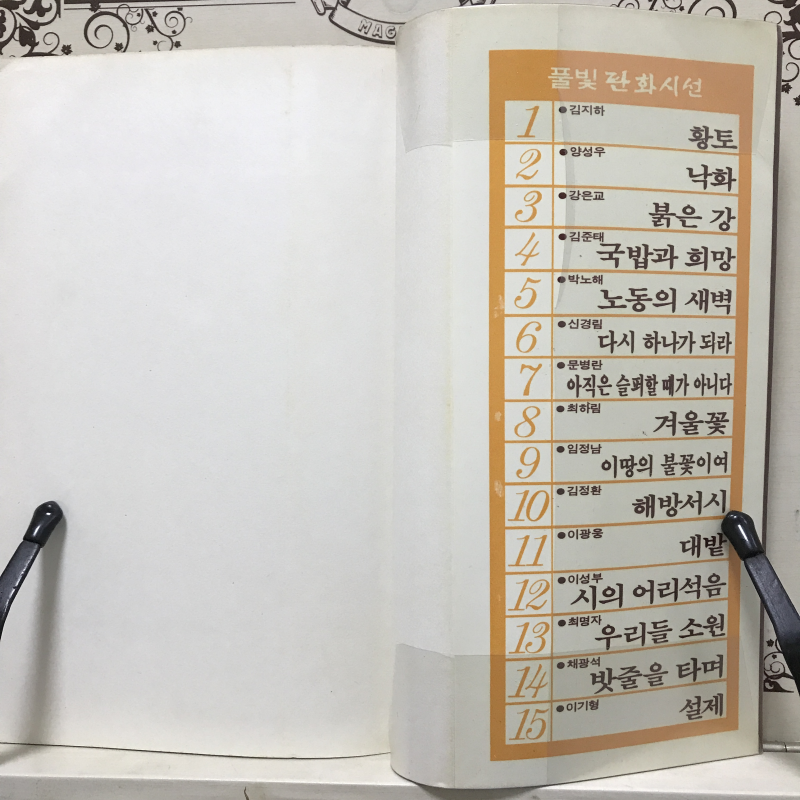 MAG
풀빛 판화시선
1 ●김지하 황토
2 ●양성우 낙화
3 ●강은교 붉은 강
4 ●김준태 국밥과 희망
5 ●박노해 노동의 새벽
6 ●신경림 다시 하나가 되라
7 ●문병란 아직은 슬퍼할 때가 아니다
8 ●최하림 겨울꽃
9 ●임정남 이땅의 불꽃이여
10 ●김정환 해방서시
11 ●이광웅 대밭
12 ●이성부 시의 어리석음
13 ●최명자 우리들 소원
14 ●채광석 밧줄을 타며
15 ●이기형 설제